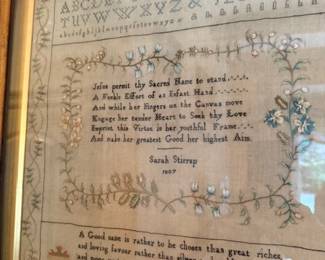 ABCDEF
TUVWXYZ &
abcdefghijklmnopqrstuvwxyz
Jesus permit thy Sacred Name to stand
A Feeble Effort of an Enfant Hand
And while her Fingers on the Canvas move
Engage her tender Heart to Seek thy Love
Enprint this Virtue is her youthful Frame
And make her greatest Good her highest Aim
Sarah Stirrup
1807
A Good name is rather to be chosen than great riches
and loving favour rather than